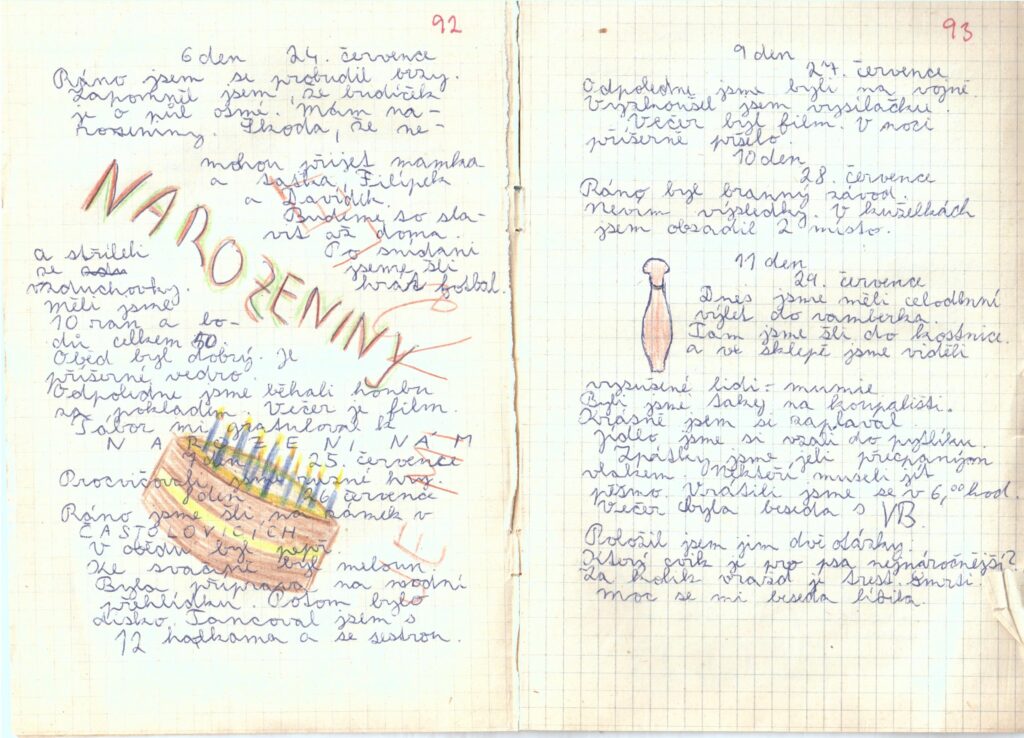 92
6 den 24. července
Ráno jsem se probudil brzy.
Zapomněl jsem, že budíček
je o půl osmé. Mám na-
rozeniny. Škoda, že ne-
mohou přijet mamka
a taťka, Filípek
a Davídek.
Budeme to sla-
vit až doma.
Po snídani
jsme šli
hrát fotbal.
NAROZENINY
a stříleli
ze
vzduchovky.
Měli jsme
10 ran a bo-
dů celkem 50.
Oběd byl dobrý. Je
příšerné vedro.
Odpoledne jsme běhali honbu
za pokladem. Večer je film.
Tábor mi gratuloval k
NAROZENINÁM
7 den 25 července
Procvičovali jsme různé hry.
8 den 26 července
Ráno jsme šli na zámek v
ČASTOLOVICÍCH
V obědu byl
Ke svačině byl meloun
Byla příprava na módní
přehlídku. Potom bylo
disko. Tancoval jsem s
12 holkama a se sestrou.
93
9 den
27. července
Odpoledne jsme byli na vojně.
Vyzkoušel jsem vysílačku.
Večer byl film. V noci
příšerně pršelo.
10 den
28. července
Ráno byl branný závod.
Nevím výsledky. V kuželkách
jsem obsadil 2 místo.
11 den
29. července
Dnes jsme měli celodenní
výlet do vamberka.
Tam jsme šli do kostnice
a ve sklepě jsme viděli
vysušené lidi - mumie.
Byli jsme taky na koupališti.
Krásně jsem si zaplaval.
Jídlo jsme si vzali do pytlíku.
Zpátky jsme jeli přecpaným
vlakem. Někteří museli jít
pěšmo. Vrátili jsme se v 6,00 hod.
Večer byla beseda s VB
Položil jsem jim dvě otázky.
Který cvik je pro psa nejnáročnější?
Za kolik vražd je trest smrti.
Moc se mi beseda líbila.